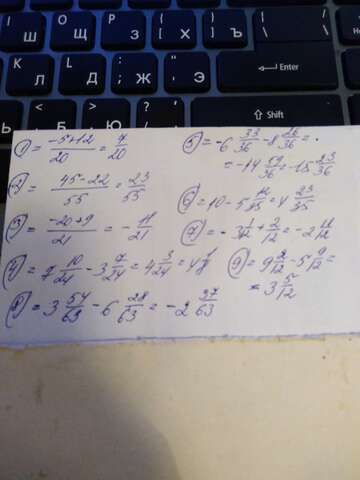 Ш
Щ
З
Х
Ъ
Л
Д
Ж
Э
Enter
Shift
1) = (-5+12)/20 = 7/20
2) = (45-22)/55 = 23/55
3) = (-20+9)/21 = -11/21
4) = 7 10/24 - 3 7/24 = 4 3/24 = 4 1/8
8) = 3 54/63 - 6 28/63 = -2 37/63
5) = -6 33/36 - 8 26/36 =
= -14 59/36 = -15 23/36
6) = 10 - 5 12/35 = 4 23/35
7) = -3 1/12 + 2/12 = -2 11/12
9) = 9 2/12 - 5 9/12 =
= 3 5/12